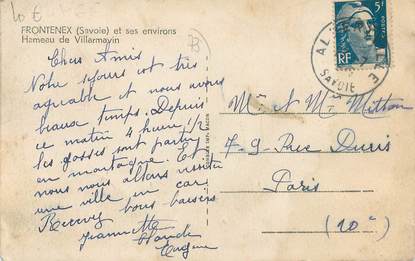 10 €
FRONTENEX (Savoie) et ses environs
Hameau de Villarmavin
Chers Amis
Notre séjour est très
agréable et nous avons
beau temps. Depuis
ce matin 4 heures 1/2
les gosses sont partis
en montagne. Et
nous nous allons visiter
une ville en car
Recevez bons baisers
Jeannette
Claude
Eugène
5F
RF
AL
SAVOIE
Mr et Mme Mitton
79 Rue
Paris
(10e)